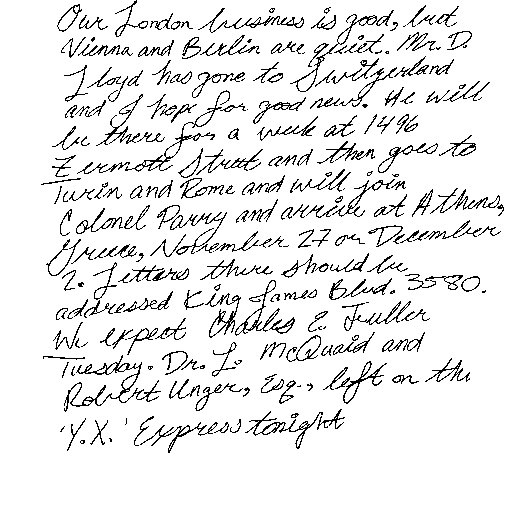 Our London business is good, but
Vienna and Berlin are quiet. Mr. D.
Lloyd has gone to Switzerland
and I hope for good news. He will
be there for a week at 1496
Zermott Street and then goes to
Turin and Rome and will join
Colonel Parry and arrive at Athens,
Greece, November 27 or December
2. Letters there should be
addressed King James Blvd. 3580.
We expect Charles E. Fuller
Tuesday. Dr. L. McQuaid and
Robert Unger, Esq., left on the
'Y.X.' Express tonight